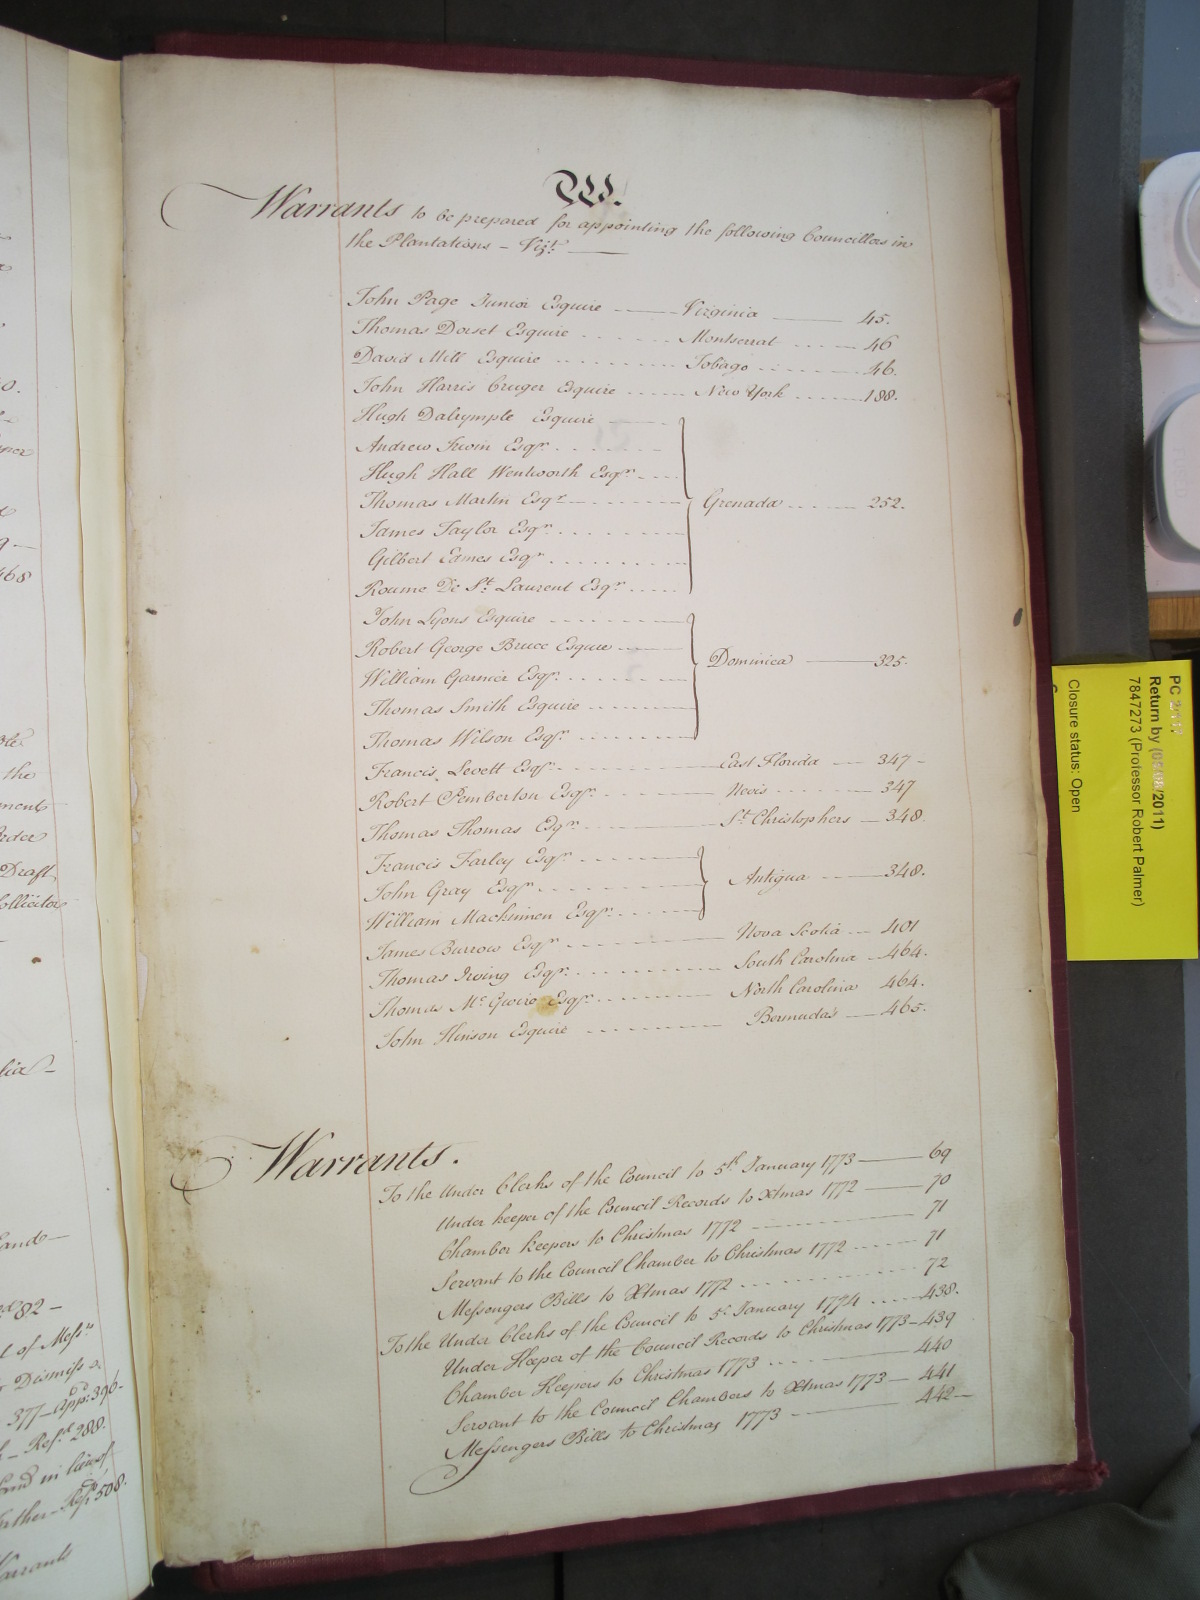 W.
Warrants to be prepared for appointing the following Councillors in
the Plantations – Vizt.
John Page Junior Esquire Virginia 45.
Thomas Dorset Esquire Montserrat 46
David Mill Esquire Tobago 46.
John Harris Cruger Esquire New York 188.
Hugh Dalrymple Esquire
Andrew Irwin Esqr.
Hugh Hall Wentworth Esqr.
Thomas Martin Esqr Grenada 252.
James Taylor Esqr.
Gilbert Eames Esqr
Roume De St. Laurent Esqr.
John Lyons Esquire
Robert George Bruce Esquire Dominica 325.
William Garnier Esqr.
Thomas Smith Esquire
Thomas Wilson Esqr.
Francis Levett Esqr. East Florida 347
Robert Pemberton Esqr. Nevis 347
Thomas Thomas Esqr. St. Christophers 348.
Francis Farley Esqr.
John Gray Esqr. Antigua 348.
William Mackinnen Esqr.
James Burrow Esqr. Nova Scotia 401
Thomas Irving Esqr. South Carolina 464.
Thomas Mc. Gwire Esqr. North Carolina 464.
John Hinson Esquire Bermudas 465.
Warrants.
To the Under Clerks of the Council to 5th January 1773 69
Under keeper of the Council Records to Xtmas 1772 70
Chamber keepers to Christmas 1772 71
Servant to the Council Chamber to Christmas 1772 71
Messengers Bills to Xtmas 1772 72
To the Under Clerks of the Council to 5th January 1774 438.
Under Keeper of the Council Records to Christmas 1773 439
Chamber Keepers to Christmas 1773 440
Servant to the Council Chambers to Xtmas 1773 441
Messengers Bills to Christmas 1773 442
PC 2/117
Return by (05/08/2011)
7847273 (Professor Robert Palmer)
Closure status: Open
468
the
Draft
82
of Messrs
Dismiss
377 – App: 396
288.
Land in law of
508.
Warrants